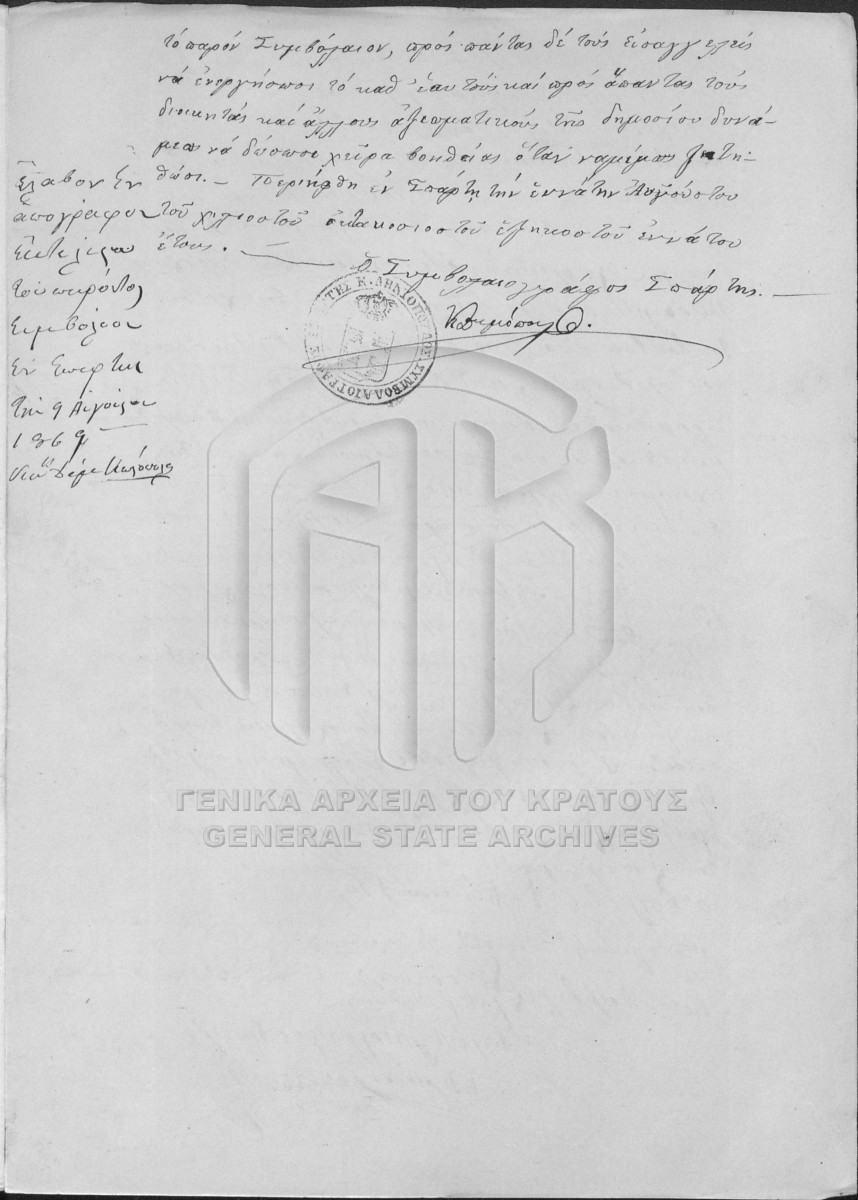 τὸ παρὸν Συμβόλαιον, πρὸς πάντας δὲ τοὺς εἰσαγγελεῖς
νὰ ἐνεργήσωσι τὸ καθ' ἑαυτοὺς καὶ πρὸς ἅπαντας τοὺς
διοικητὰς καὶ ἄλλους ἀξιωματικοὺς τῆς δημοσίου δυνά-
μεως νὰ δώσωσι χεῖρα βοηθείας ὅταν νομίμως ζητη-
θῶσι. — Περιήφθη ἐν Σπάρτῃ τὴν ἐννάτην Αὐγούστου
τοῦ χιλιοστοῦ ὀκτακοσιοστοῦ ἑξηκοστοῦ ἐννάτου
ἔτους. —
Ὁ Συμβολαιογράφος Σπάρτης. —
Ἔλαβον ἓν
ἀπόγραφον
Ἐκτελεστὸν
τοῦ παρόντος
Συμβολαίου
Ἐν Σπάρτῃ
τὴν 9 Αὐγούστου
1869
ΓΕΝΙΚΑ ΑΡΧΕΙΑ ΤΟΥ ΚΡΑΤΟΥΣ
GENERAL STATE ARCHIVES